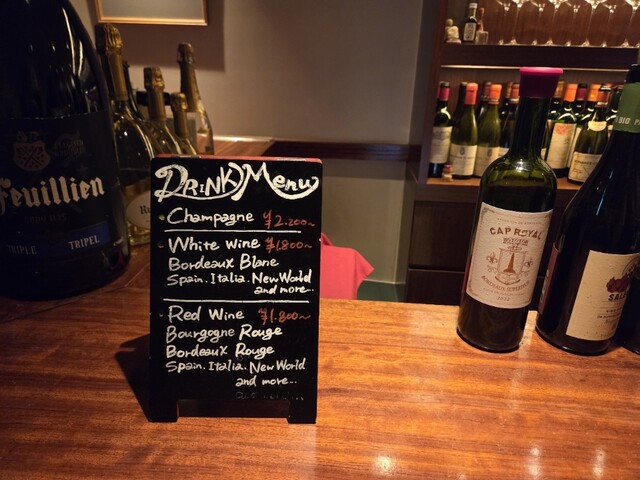 Feuillien
TRIPLE
TRIPEL
DRINK Menu
Champagne ¥2.200~
White Wine ¥1.800~
Bordeaux Blanc
Spain. Italia. New World
and more...
Red Wine ¥1.800~
Bourgogne Rouge
Bordeaux Rouge
Spain. Italia. New World
and more...
CAP ROYAL
BORDEAUX SUPÉRIEUR
BIO